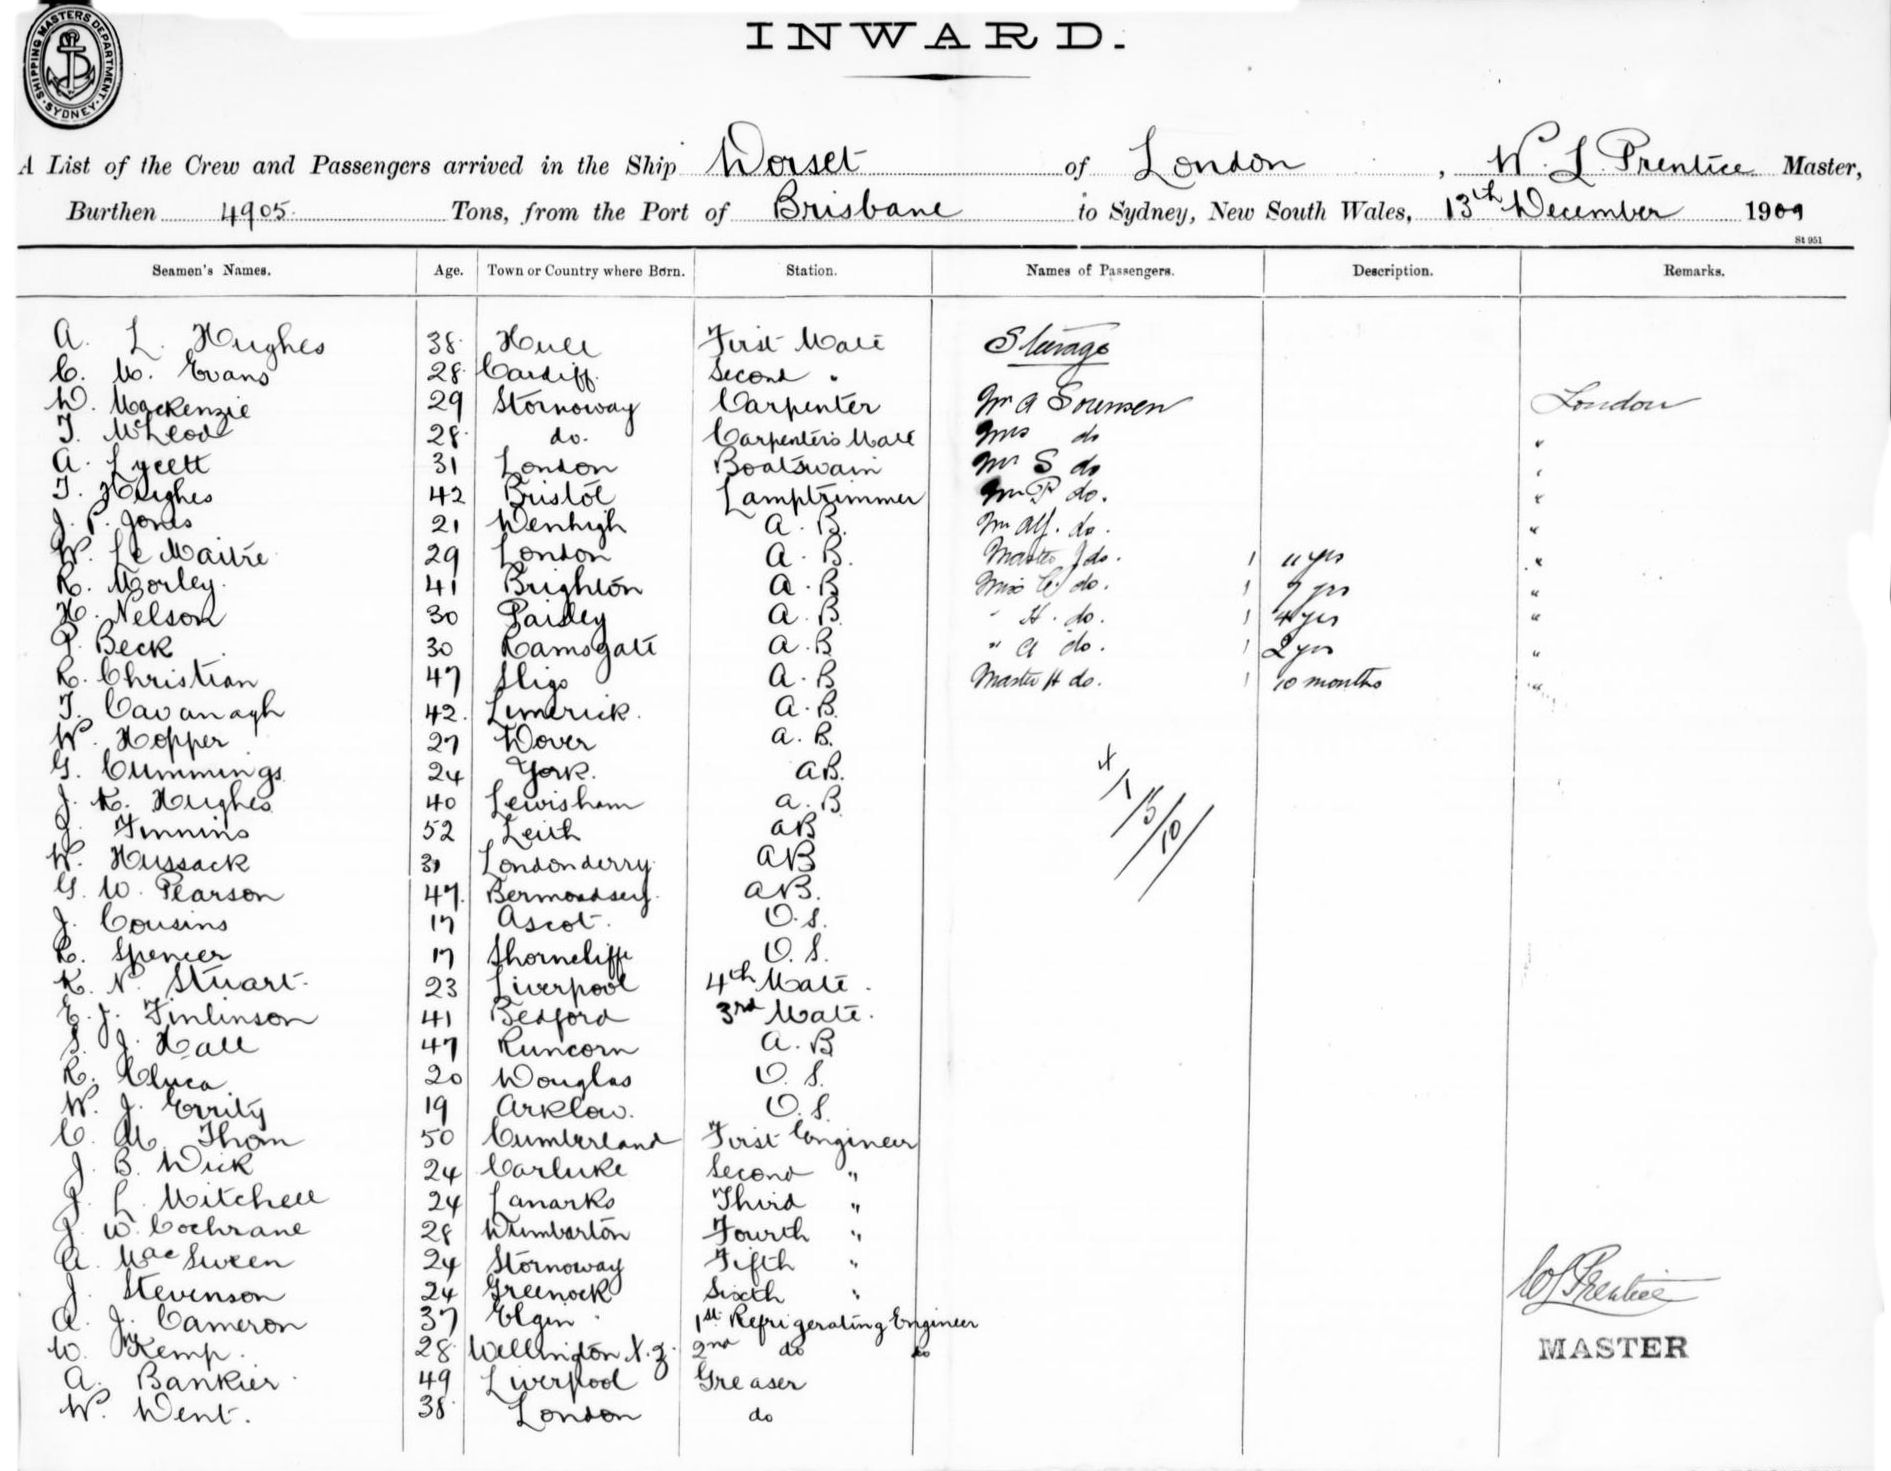 SHIPPING MASTERS DEPARTMENT. SYDNEY.
INWARD.
A List of the Crew and Passengers arrived in the Ship Dorset of London, W. L. Prentice Master,
Burthen 4905 Tons, from the Port of Brisbane to Sydney, New South Wales, 13th December 1909
St 951
Seamen's Names. Age. Town or Country where Born. Station. Names of Passengers. Description. Remarks.
A. L. Hughes 38 Hull First Mate Steerage
C. M. Evans 28 Cardiff Second "
D. Mackenzie 29 Stornoway Carpenter Mr A Sorensen London
T. McLeod 28 do. Carpenter's Mate Mrs do "
A. Lycett 31 London Boatswain Mr S do "
T. Hughes 42 Bristol Lamptrimmer Mr P do. "
J. P. Jones 21 Denbigh A. B. Mr Alf. do. "
W. Le Maitre 29 London A. B. Master J do. 1 11 yrs "
R. Morley. 41 Brighton A. B Miss C. do. 1 7 yrs "
H. Nelson 30 Paisley A. B. " H. do. 1 4 yrs "
P. Beck 30 Ramsgate A. B " A do. 1 2 yrs "
R. Christian 47 Sligo A. B Master H do. 1 10 months "
T. Cavanagh 42. Limerick. A. B.
W. Hopper 27 Dover A. B.
G. Cummings 24 York. AB.
J. K. Hughes 40 Lewisham A. B.
J. Finnins 52 Leith AB
W. Hussack 31 Londonderry AB
G. W. Pearson 47. Bermondsey. AB.
J. Cousins 17 Ascot. O. S.
R. Spencer 17 Shorncliffe O. S.
K. N. Stuart. 23 Liverpool 4th Mate.
E. J. Finlinson 41 Bedford 3rd Mate.
S. J. Hall 47 Runcorn A. B
R. Cluca 20 Douglas O. S.
W. J. Errity 19 Arklow. O. S.
C. M. Thom 50 Cumberland First Engineer
J. B. Dick 24 Carluke Second "
J. L. Mitchell 24 Lanarks Third "
J. W. Cochrane 28 Dumbarton Fourth "
A. MacSween 24 Stornoway Fifth "
J. Stevenson 24 Greenock Sixth "
A. J. Cameron 37 Elgin 1st Refrigerating Engineer
W. Kemp. 28 Wellington N. Z. 2nd do do
A. Bankier 49 Liverpool Greaser
W. Dent. 38 London do
4/1/15/10/
W L Prentice
MASTER